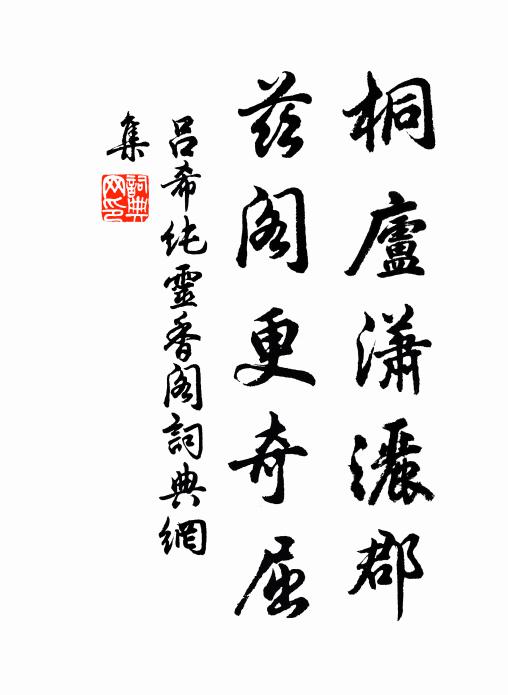 桐廬瀟灑郡
茲閣更奇屈
呂希純靈香閣詞典網
集
詞典
网印